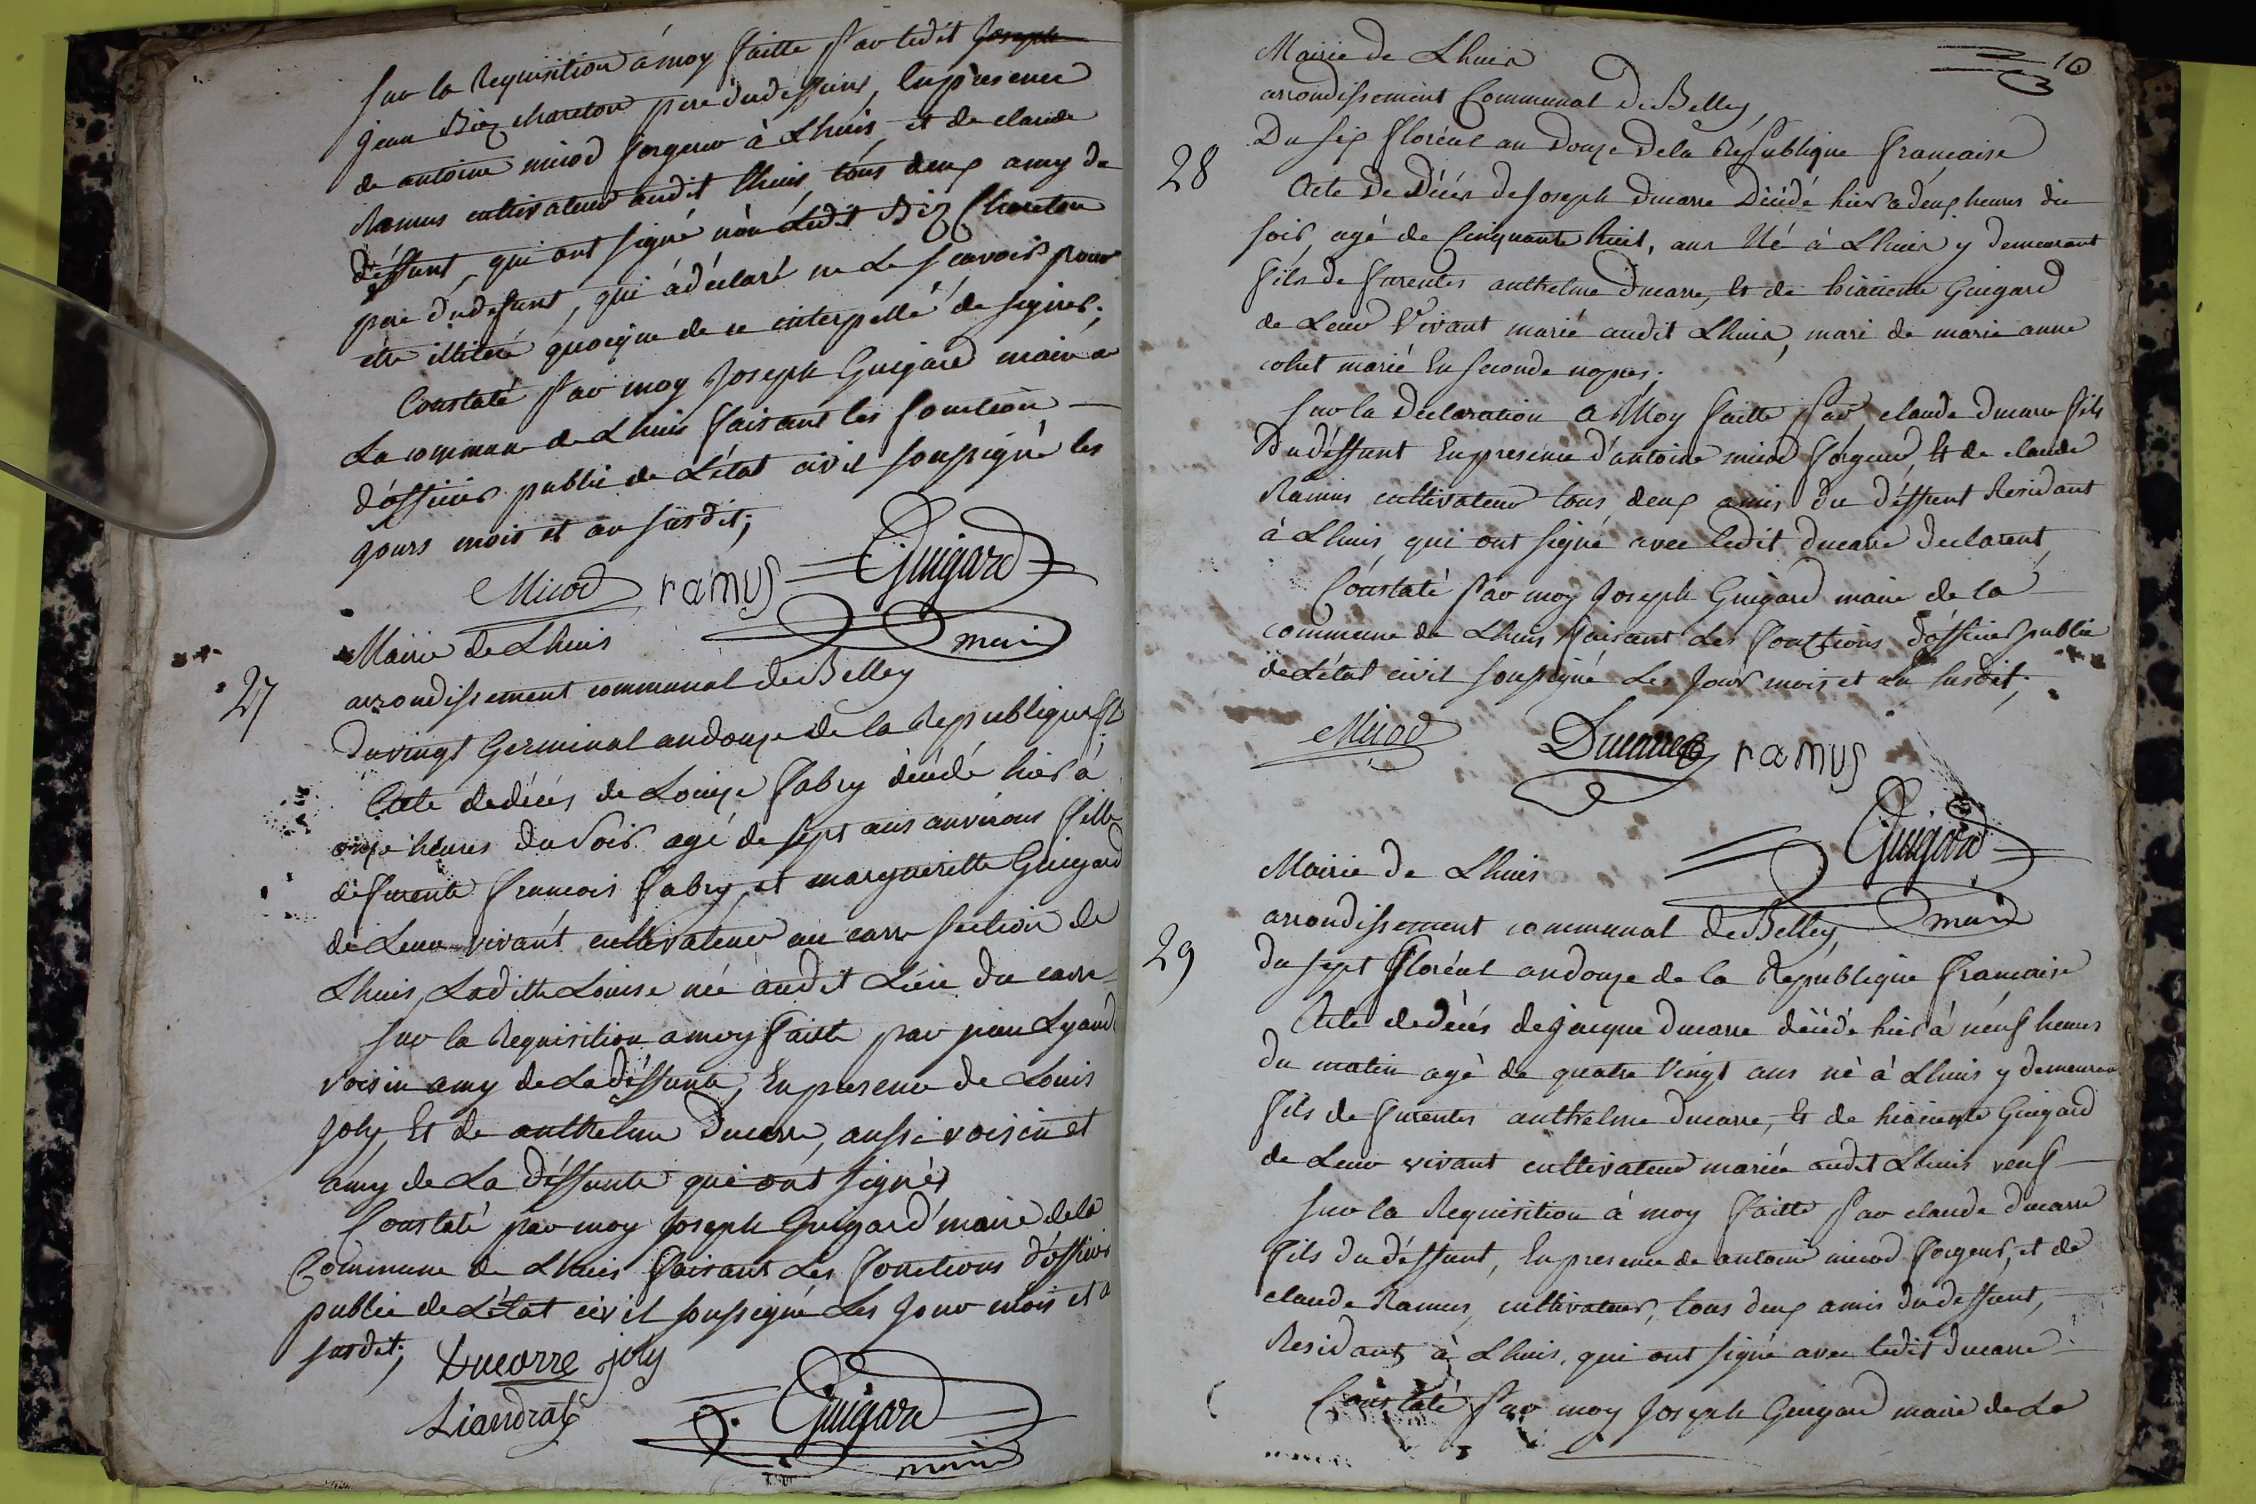 Sur la Requisition à moy faitte par ledit Joseph
jean Biz chareton pere du deffunt, En presence
de antoine micod forgeur à Lhuis, et de claude
Ramus cultivateur audit Lhuis, tous deux amy du
deffunt, qui ont signé non Ledit Biz Chareton
pere du defunt, qui à déclaré ne Le scavoir pour
etre illiteré quoique de ce interpellé de signer;
Constaté par moy Joseph Guigard maire de
La commune de Lhuis faisant les fonction
d'officier public de L'état civil soussigné les
jours mois et an susdit;
Micod ramus Guigard
maire
Mairie de Lhuis
27
arrondissement communal de Belley
Du vingt Germinal an douze de la Republique f
Acte de décés de Louize Fabry décédé hier à
onze heures du Soir agé de sept ans anvirons fille
de furente francois Fabry, et margueritte Guigard
de Leur vivant cultivateur au carre section de
Lhuis, Laditte Louise né audit Lieu du carre
Sur la Requisition a moy faitte par jean Lyand
voisin amy de La deffunte, En presence de Louis
joly Et de anthelme Ducarre, aussi voisin et
amy de La deffunte qui ont signés
Constaté par moy Joseph Guigard maire de la
Commune de Lhuis faisant Les fonctions d'officier
public de L'état civil soussigné Les Jour mois et a
susdit;
Ducarre joly
Liandrat Guigard
maire
10
Mairie de Lhuis
arrondissement Communal de Belley,
28
Du six floréal an Douze De la Republique francaise
Acte De Décés de Joseph Ducarre Décédé hier a deux heures du
soir, agé de Cinquante huit, ans Né à Lhuis y demeurant
fils de furentes anthelme Ducarre, Et de hiacinte Guigard
de Leur Vivant marié audit Lhuis, mari de marie anne
cohet marié En seconde nopces;
Sur la Déclaration a Moy faitte par claude Ducarre fils
Du deffunt En presence d'antoine micod forgeur, Et de claude
Ramus cultivateur tous deux amis du deffunt Residant
à Lhuis, qui ont signé avec ledit ducarre declarent,
Constaté par moy Joseph Guigard maire de la
commune de Lhuis faisant Les fonctions d'officier public
de L'état civil soussigné Les Jour mois et an susdit;
Micod Ducarre ramus
Guigard
maire
Mairie de Lhuis
arrondissement communal de Belley,
29
du sept floréal an douze de la Republique francaise
Acte de décés de jacque ducarre décédé hier à neuf heures
du matin agé de quatre Vingt ans né à Lhuis y demeuran
fils de furentes anthelme ducarre, Et de hiacinte Guigard
de Leur vivant cultivateur mariée audit Lhuis veuf
Sur la Requisition à moy faitte par claude ducarre
fils du deffunt, En presence de antoine micod forgeur, et de
claude Ramus, cultivateur, tous deux amis du deffunt,
Residants à Lhuis, qui ont signé avec ledit ducarre
Constaté par moy Joseph Guigard maire de La